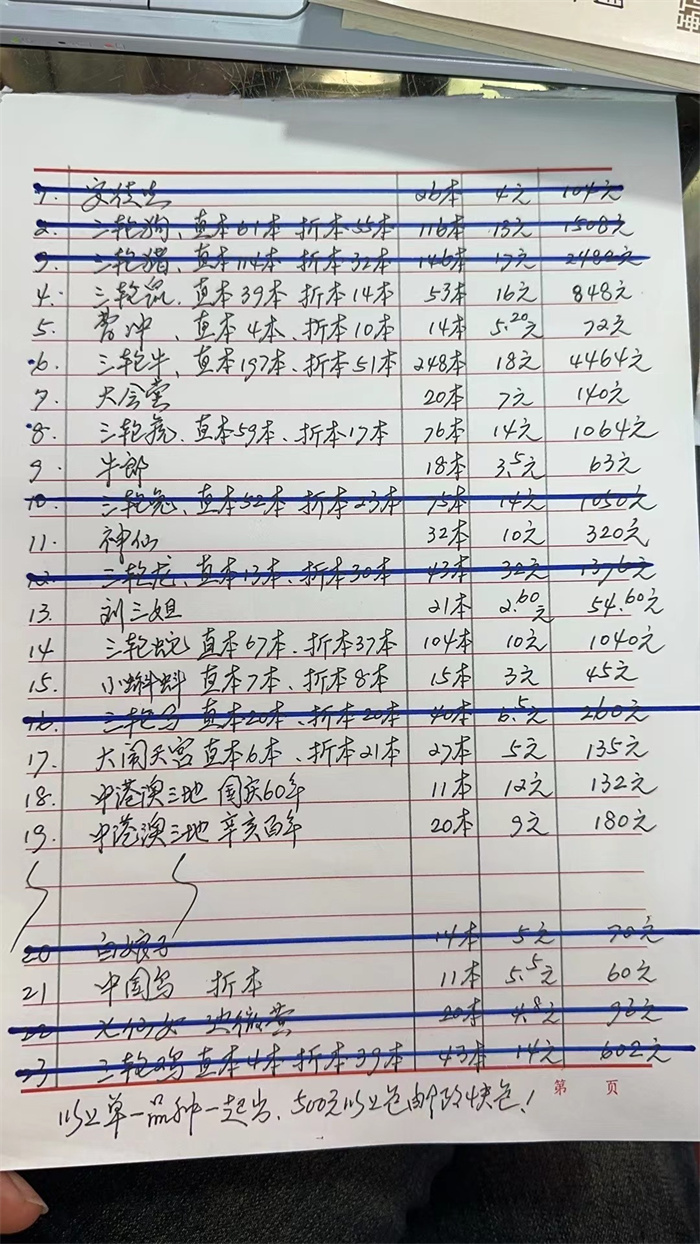 1. 安徒生 26本 4元 104元
2. 三轮狗、直本61本 折本55本 116本 13元 1508元
3. 三轮猪、直本114本 折本32本 146本 17元 2482元
4. 三轮鼠、直本39本 折本14本 53本 16元 848元
5. 曹冲、直本4本、折本10本 14本 5.20元 72元
6. 三轮牛、直本197本、折本51本 248本 18元 4464元
7. 大会堂 20本 7元 140元
8. 三轮虎、直本59本、折本17本 76本 14元 1064元
9. 牛郎 18本 3.5元 63元
10. 三轮兔、直本52本、折本23本 75本 14元 1050元
11. 神仙 32本 10元 320元
12. 三轮龙、直本13本、折本30本 43本 32元 1376元
13. 刘三姐 21本 2.60元 54.60元
14 三轮蛇 直本67本、折本37本 104本 10元 1040元
15. 小蝌蚪 直本7本、折本8本 15本 3元 45元
16. 三轮马 直本20本、折本20本 40本 6.5元 260元
17. 大闹天宫 直本6本、折本21本 27本 5元 135元
18. 中港澳三地 国庆60年 11本 12元 132元
19. 中港澳三地 辛亥百年 20本 9元 180元
20 白娘子 14本 5元 70元
21 中国鸟 折本 11本 5.5元 60元
22 七仙女 20本 4.8元
23 三轮鸡 直本4本 折本39本 43本 14元 602元
第 页
以上单一品种一起出、500元以上包邮政快包!